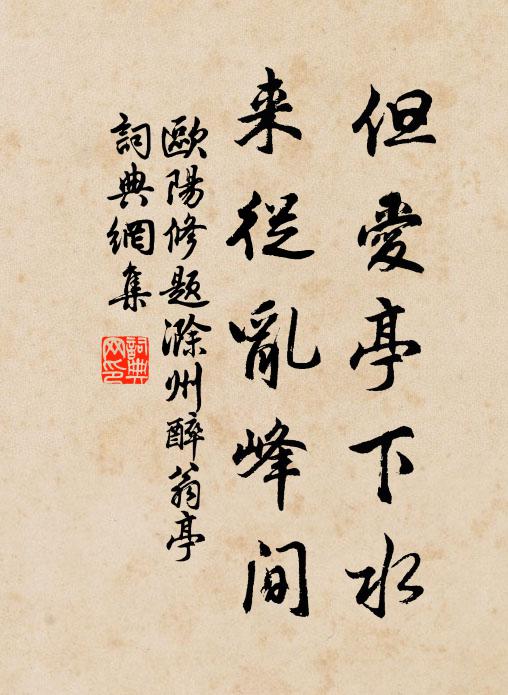 但愛亭下水
来從亂峰間
歐陽修題滁州醉翁亭
詞典網集
詞典网印